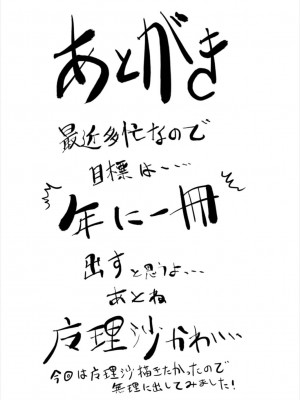 あとがき
最近多忙なので
目標は……
年に一冊
出すと思うよ…
あとね
广理沙かわいい
今回は广理沙描きたかったので
無理に出してみました!